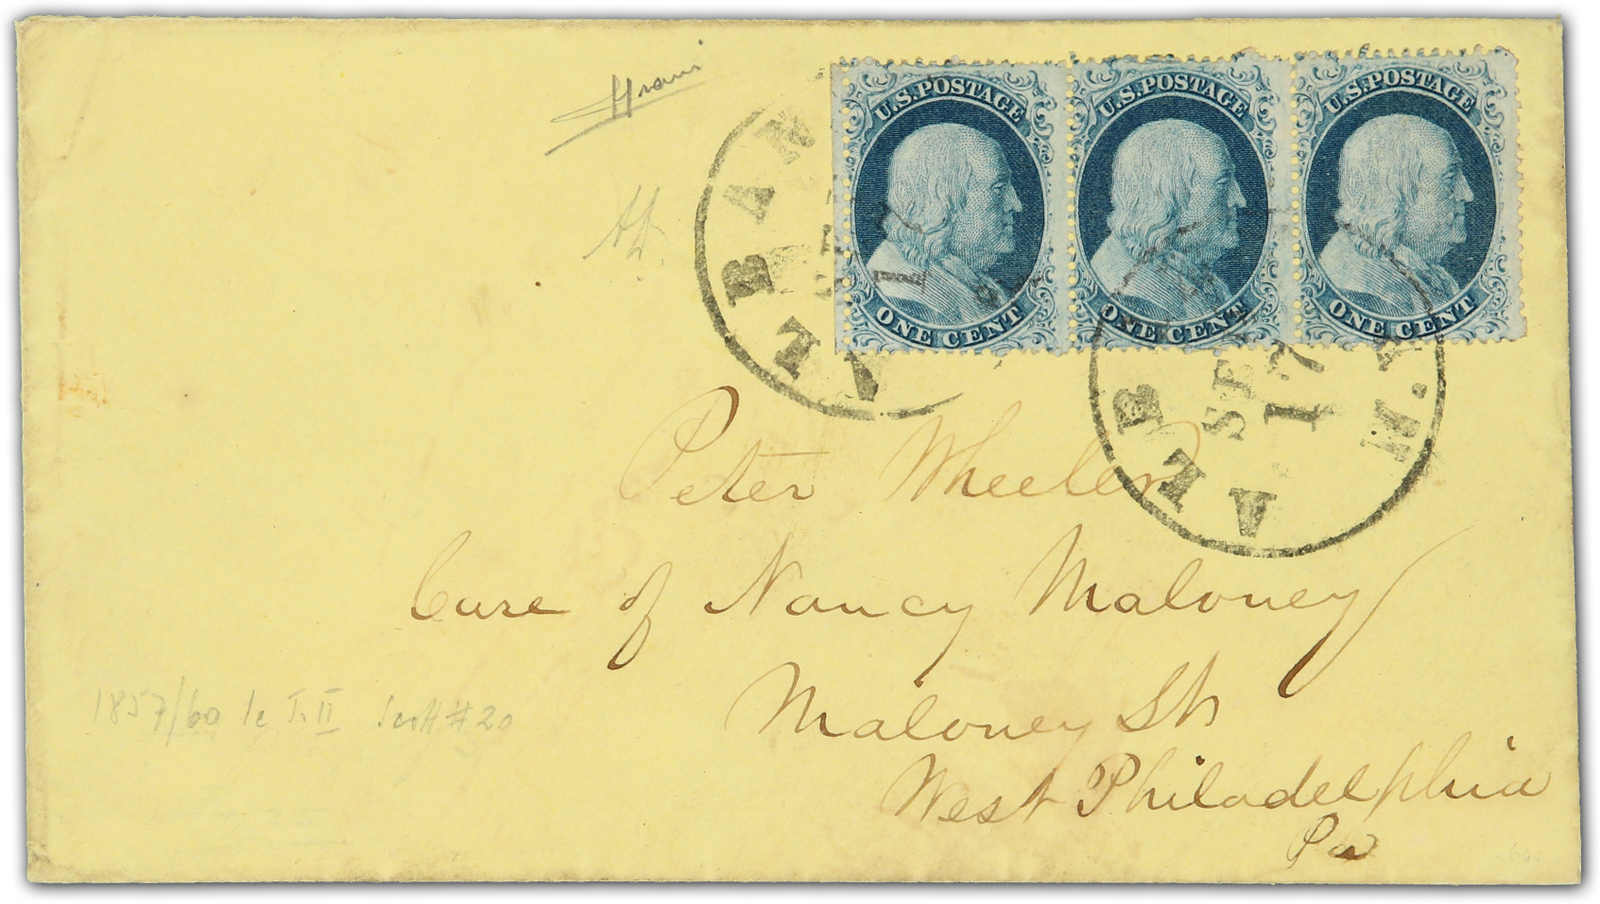 U.S. POSTAGE
ONE CENT
U.S. POSTAGE
ONE CENT
U.S. POSTAGE
ONE CENT
ALBAN
ALB
N.Y.
SE
17
Peter Wheeler
Care of Nancy Maloney
Maloney St
West Philadelphia
Pa
1857/60 1c T. II Scott #20